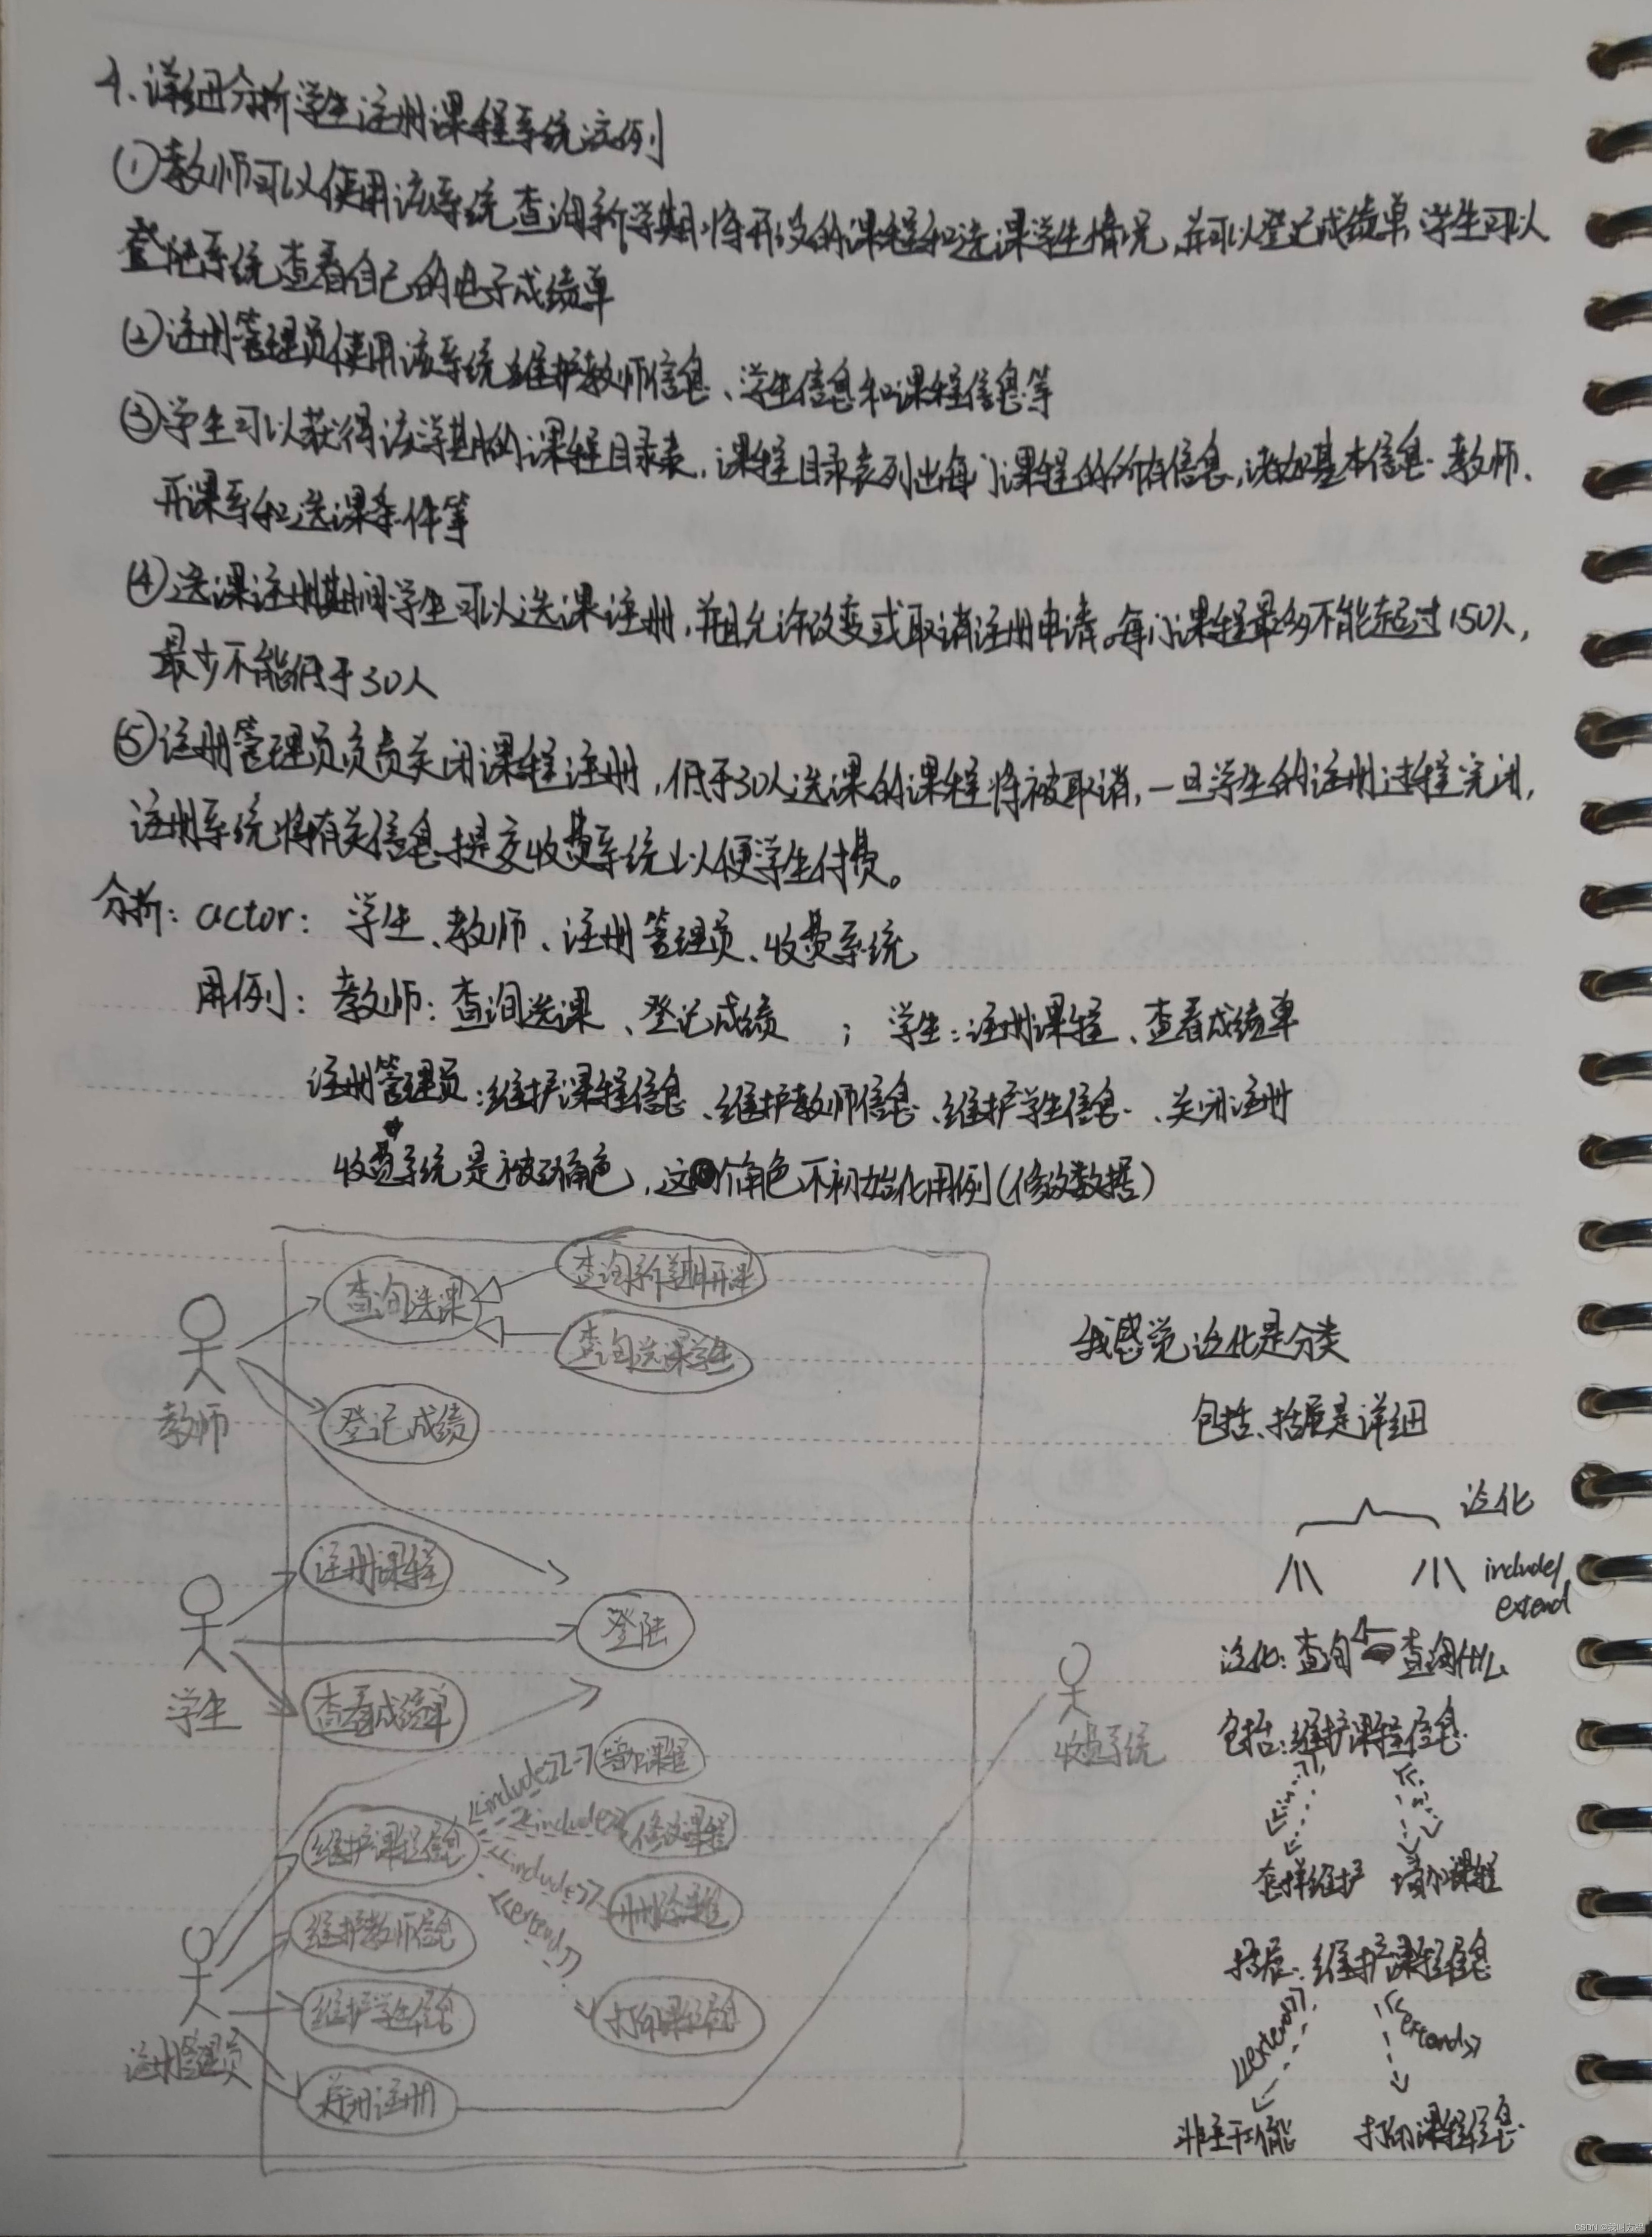 4.详细分析学生注册课程系统这例
①教师可以使用该系统查询新学期将开设的课程和选课学生情况,并可以登记成绩单,学生可以
登陆系统查看自己的电子成绩单
②注册管理员使用该系统维护教师信息、学生信息和课程信息等
③学生可以获得该学期的课程目录表,课程目录表列出每门课程的所有信息,诸如基本信息、教师、
开课系和选课条件等
④选课注册期间学生可以选课注册,并且允许改变或取消注册申请。每门课程最多不能超过150人,
最少不能低于30人
⑤注册管理员负责关闭课程注册,低于30人选课的课程将被取消,一旦学生的注册过程完闭,
注册系统将有关信息提交收费系统以便学生付费。
分析: actor: 学生、教师、注册管理员、收费系统
用例: 教师:查询选课、登记成绩 ; 学生:注册课程、查看成绩单
注册管理员:维护课程信息、维护教师信息、维护学生信息、关闭注册
收费系统是被动角色,这个角色不初始化用例(修改数据)
查询选课
查询新学期开课
查询选课学生
教师
登记成绩
注册课程
登陆
学生
查看成绩单
收费系统
<<include>>
增加课程
维护课程信息
<<include>>
修改课程
<<include>>
删除课程
<<extend>>
维护教师信息
维护学生信息
打印课程信息
注册管理员
关闭注册
我感觉泛化是分类
包括、拓展是详细
泛化
include/
extend
泛化:查询 查询什么
包括:维护课程信息
怎样维护 增加课程
拓展:维护课程信息
<<extend>> <<extend>>
非主干功能 打印课程信息
CSDN @我叫方程